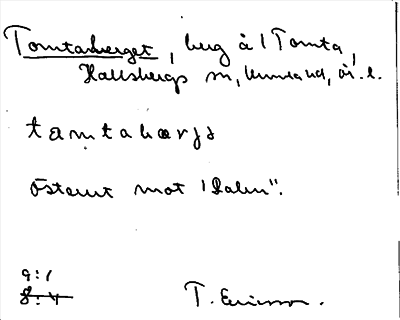 Tomtaberget, berg å 1 Tomta,
Hallsbergs sn, Kumla hd, Ör. l.
tamtabærjs
österut mot "Dalen".
9:1
8:4
T. Ericsson.